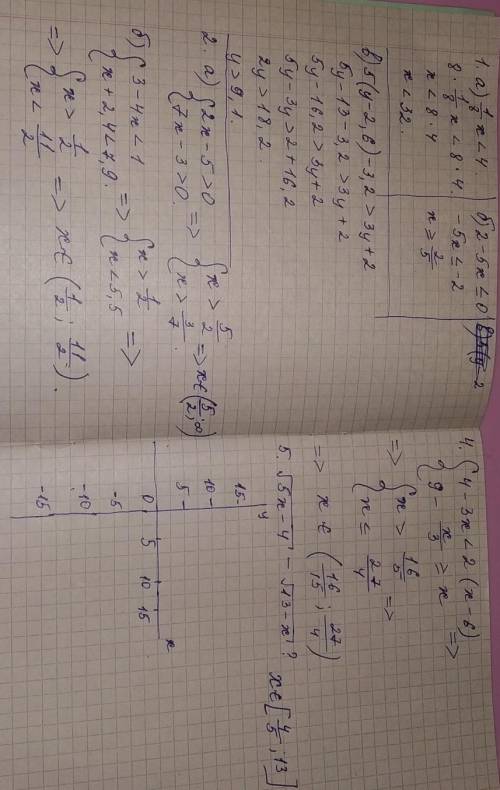 1. а) 1/8 x < 4
8 · 1/8 x < 8 · 4.
x < 8 · 4
x < 32.
б) 2 - 5x ≤ 0
-5x ≤ -2
x ≥ 2/5
в) 5(y - 2,6) - 3,2 > 3y + 2
5y - 13 - 3,2 > 3y + 2
5y - 16,2 > 3y + 2
5y - 3y > 2 + 16,2
2y > 18,2.
y > 9,1.
2. а) { 2x - 5 > 0 => { x > 5/2 => x ∈ (5/2; ∞)
{ 7x - 3 > 0. { x > 3/7.
б) { 3 - 4x < 1 => { x > 1/2 =>
{ x + 2,4 < 7,9. { x < 5,5
=> { x > 1/2 => x ∈ (1/2; 11/2).
{ x < 11/2
4. { 4 - 3x < 2(x - 6) =>
{ 9 - x/3 ≥ x
=> { x > 16/5 =>
{ x ≤ 27/4
=> x ∈ (16/15; 27/4)
5. √5x - 4 - √13 - x ? x ∈ [4/5; 13]
y
15
10
5
0 5 10 15 x
-5
-10
-15